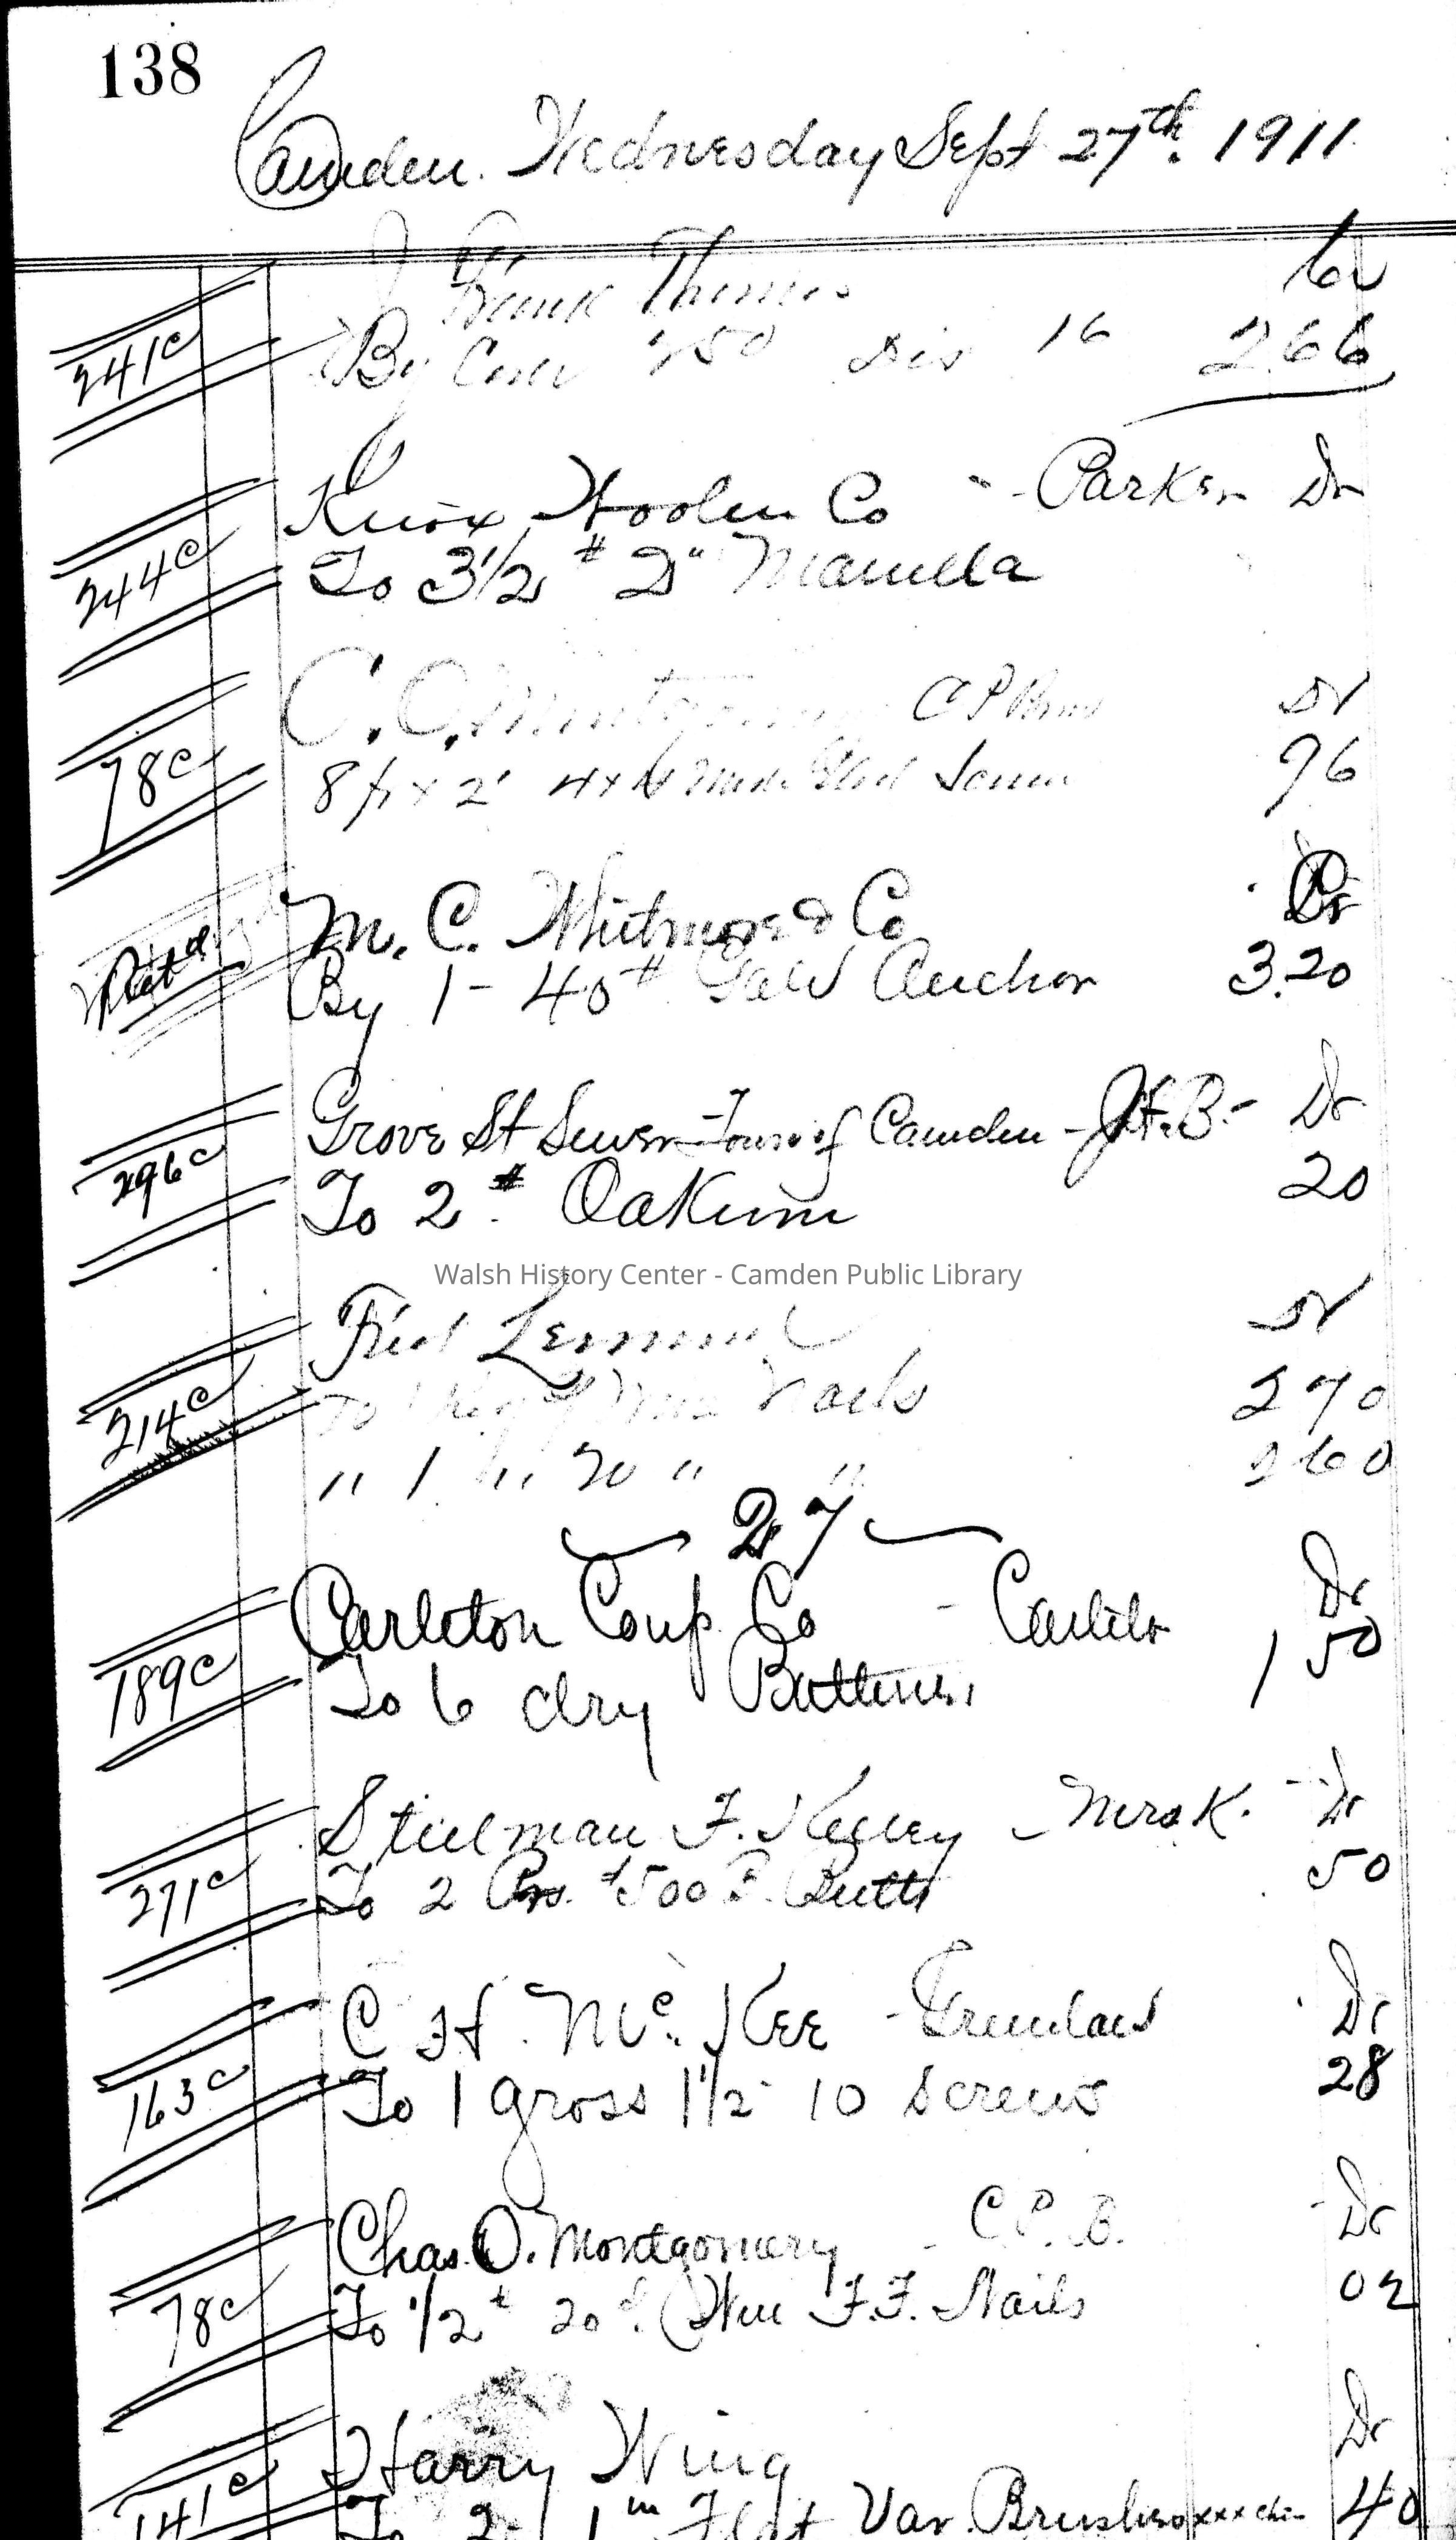 138
Camden. Wednesday Sept 27th. 1911.
J Frank Thomas Cr
241c By Cash 250 Dis 16 2.66
Knox Woolen Co - Parker Dr
244c To 3 1/2 # 2" Manilla
C. O. Montgomery C P Dr
78c 8 ft x 2' 96
M. C. Whitmore & Co Cr
By 1 - 40 # Galv Anchor 3.20
Grove St Sewer - Town of Camden - J.H.B. - Dr
296c To 2 # Oakum 20
Walsh History Center - Camden Public Library
Fred Dr
214c To Nails 270
" 1 " 20 " " 260
27
Carleton Co - Dr
189c To 6 dry 1 50
Stillman F. Kelley - Mrs K. Dr
271c To 2 Prs. #500 Butts 50
C H. Mc. Kee - Dr
163c To 1 gross 1 1/2 10 Screws 28
Chas. O. Montgomery - C. P. B. - Dr
78c To 1/2 # 20d. Wire F.F. Nails 02
Harry Wing Dr
141c To 2 1 in Flat Var Brushes 40